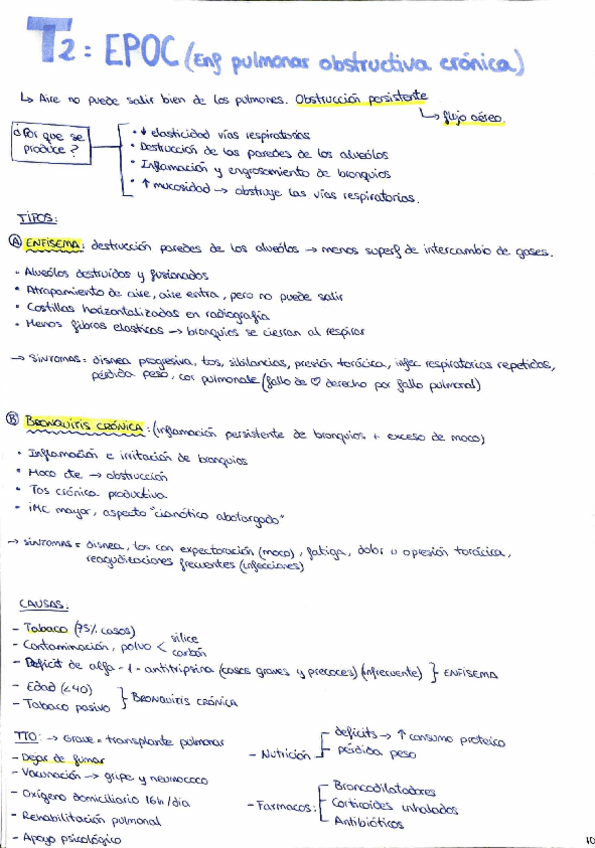 T2: EPOC (Enf pulmonar obstructiva crónica)
↳ Aire no puede salir bien de los pulmones. Obstrucción persistente
↳ flujo aéreo.
¿Por que se produce?
• ↓ elasticidad vías respiratorias
• Destrucción de las paredes de los alveólos
• Inflamación y engrosamiento de bronquios
• ↑ mucosidad → obstruye las vías respiratorias.
TIPOS:
A ENFISEMA: destrucción paredes de los alveólos → menos superf de intercambio de gases.
• Alveólos destruidos y fusionados
• Atrapamiento de aire, aire entra, pero no puede salir
• Costillas horizontalizadas en radiografía
• Menos fibras elasticas → bronquios se cierran al respirar
→ SINTOMAS = disnea progresiva, tos, sibilancias, presión torácica, infec respiratorias repetidas,
pérdida peso, cor pulmonale (fallo de ♡ derecho por fallo pulmonal)
B BRONQUITIS CRÓNICA: (inflamación persistente de bronquios + exceso de moco)
• Inflamación e irritación de bronquios
• Moco cte → obstrucción
• Tos crónica productiva
• iMC mayor, aspecto "cianótico abotargado"
→ SINTOMAS = disnea, tos con expectoración (moco), fatiga, dolor u opresión torácica,
reagudizaciones frecuentes (infecciones)
CAUSAS:
- Tabaco (75% casos)
- Contaminación, polvo < sílice
carbón
- Deficit de alfa-1-antitripsina (casos graves y precoces) (infrecuente) } ENFISEMA
- Edad (<40) } BRONQUITIS CRÓNICA
- Tabaco pasivo
TTO: → Grave = transplante pulmonar
- Dejar de fumar
- Vacunación → gripe y neumococo
- Oxígeno domiciliario 16h/dia
- Rehabilitación pulmonal
- Apoyo psicológico
- Nutrición
deficits → ↑ consumo proteico
pérdida peso
- Farmacos:
Broncodilatadores
Corticoides inhalados
Antibióticos
10